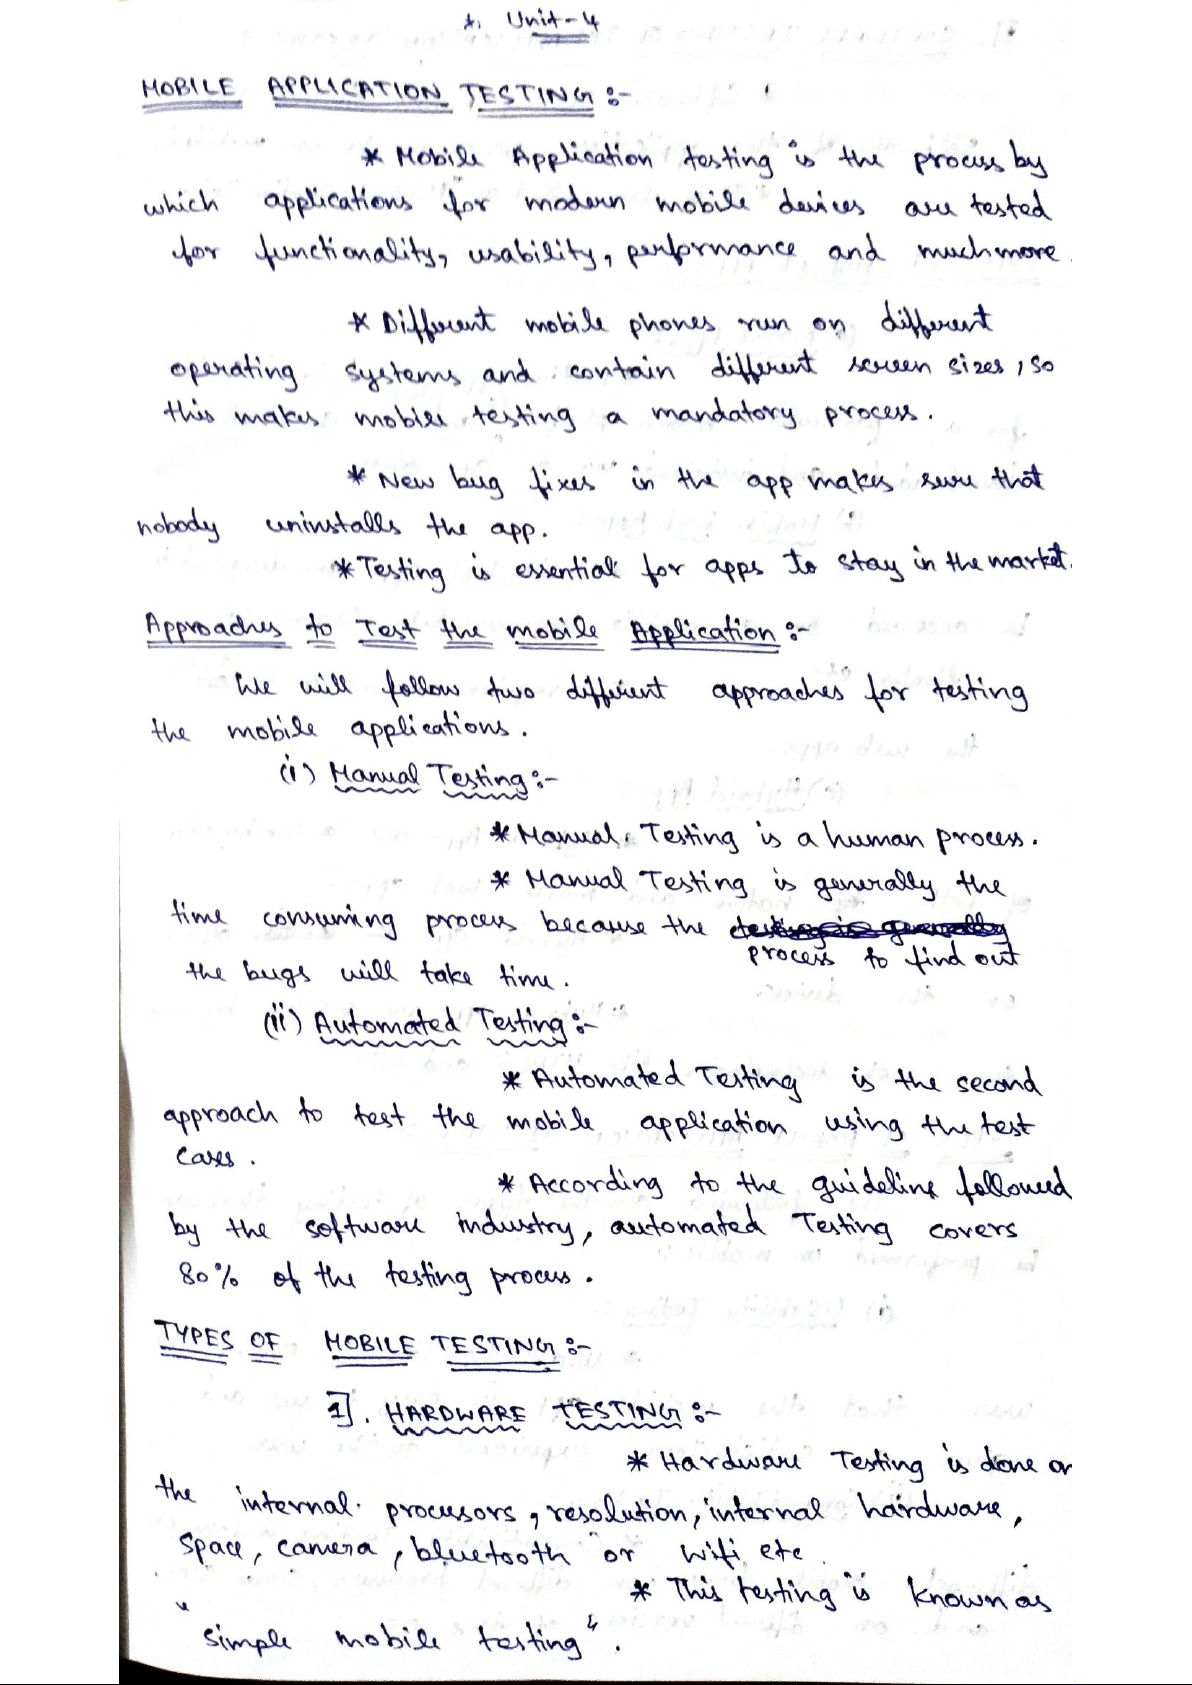 *. Unit-4
MOBILE APPLICATION TESTING :-
* Mobile Application testing is the process by
which applications for modern mobile devices are tested
for functionality, usability, performance and much more.
* Different mobile phones run on different
operating systems and contain different screen sizes, so
this makes mobile testing a mandatory process.
* New bug fixes in the app makes sure that
nobody uninstalls the app.
* Testing is essential for apps to stay in the market.
Approaches to Test the mobile Application :-
We will follow two different approaches for testing
the mobile applications.
(i) Manual Testing :-
* Manual Testing is a human process.
* Manual Testing is generally the
time consuming process because the
process to find out
the bugs will take time.
(ii) Automated Testing :-
* Automated Testing is the second
approach to test the mobile application using the test
cases.
* According to the guideline followed
by the software industry, automated Testing covers
80% of the testing process.
TYPES OF MOBILE TESTING :-
1]. HARDWARE TESTING :-
* Hardware Testing is done on
the internal processors, resolution, internal hardware,
space, camera, bluetooth or wifi etc.
* This testing is known as
"simple mobile testing".